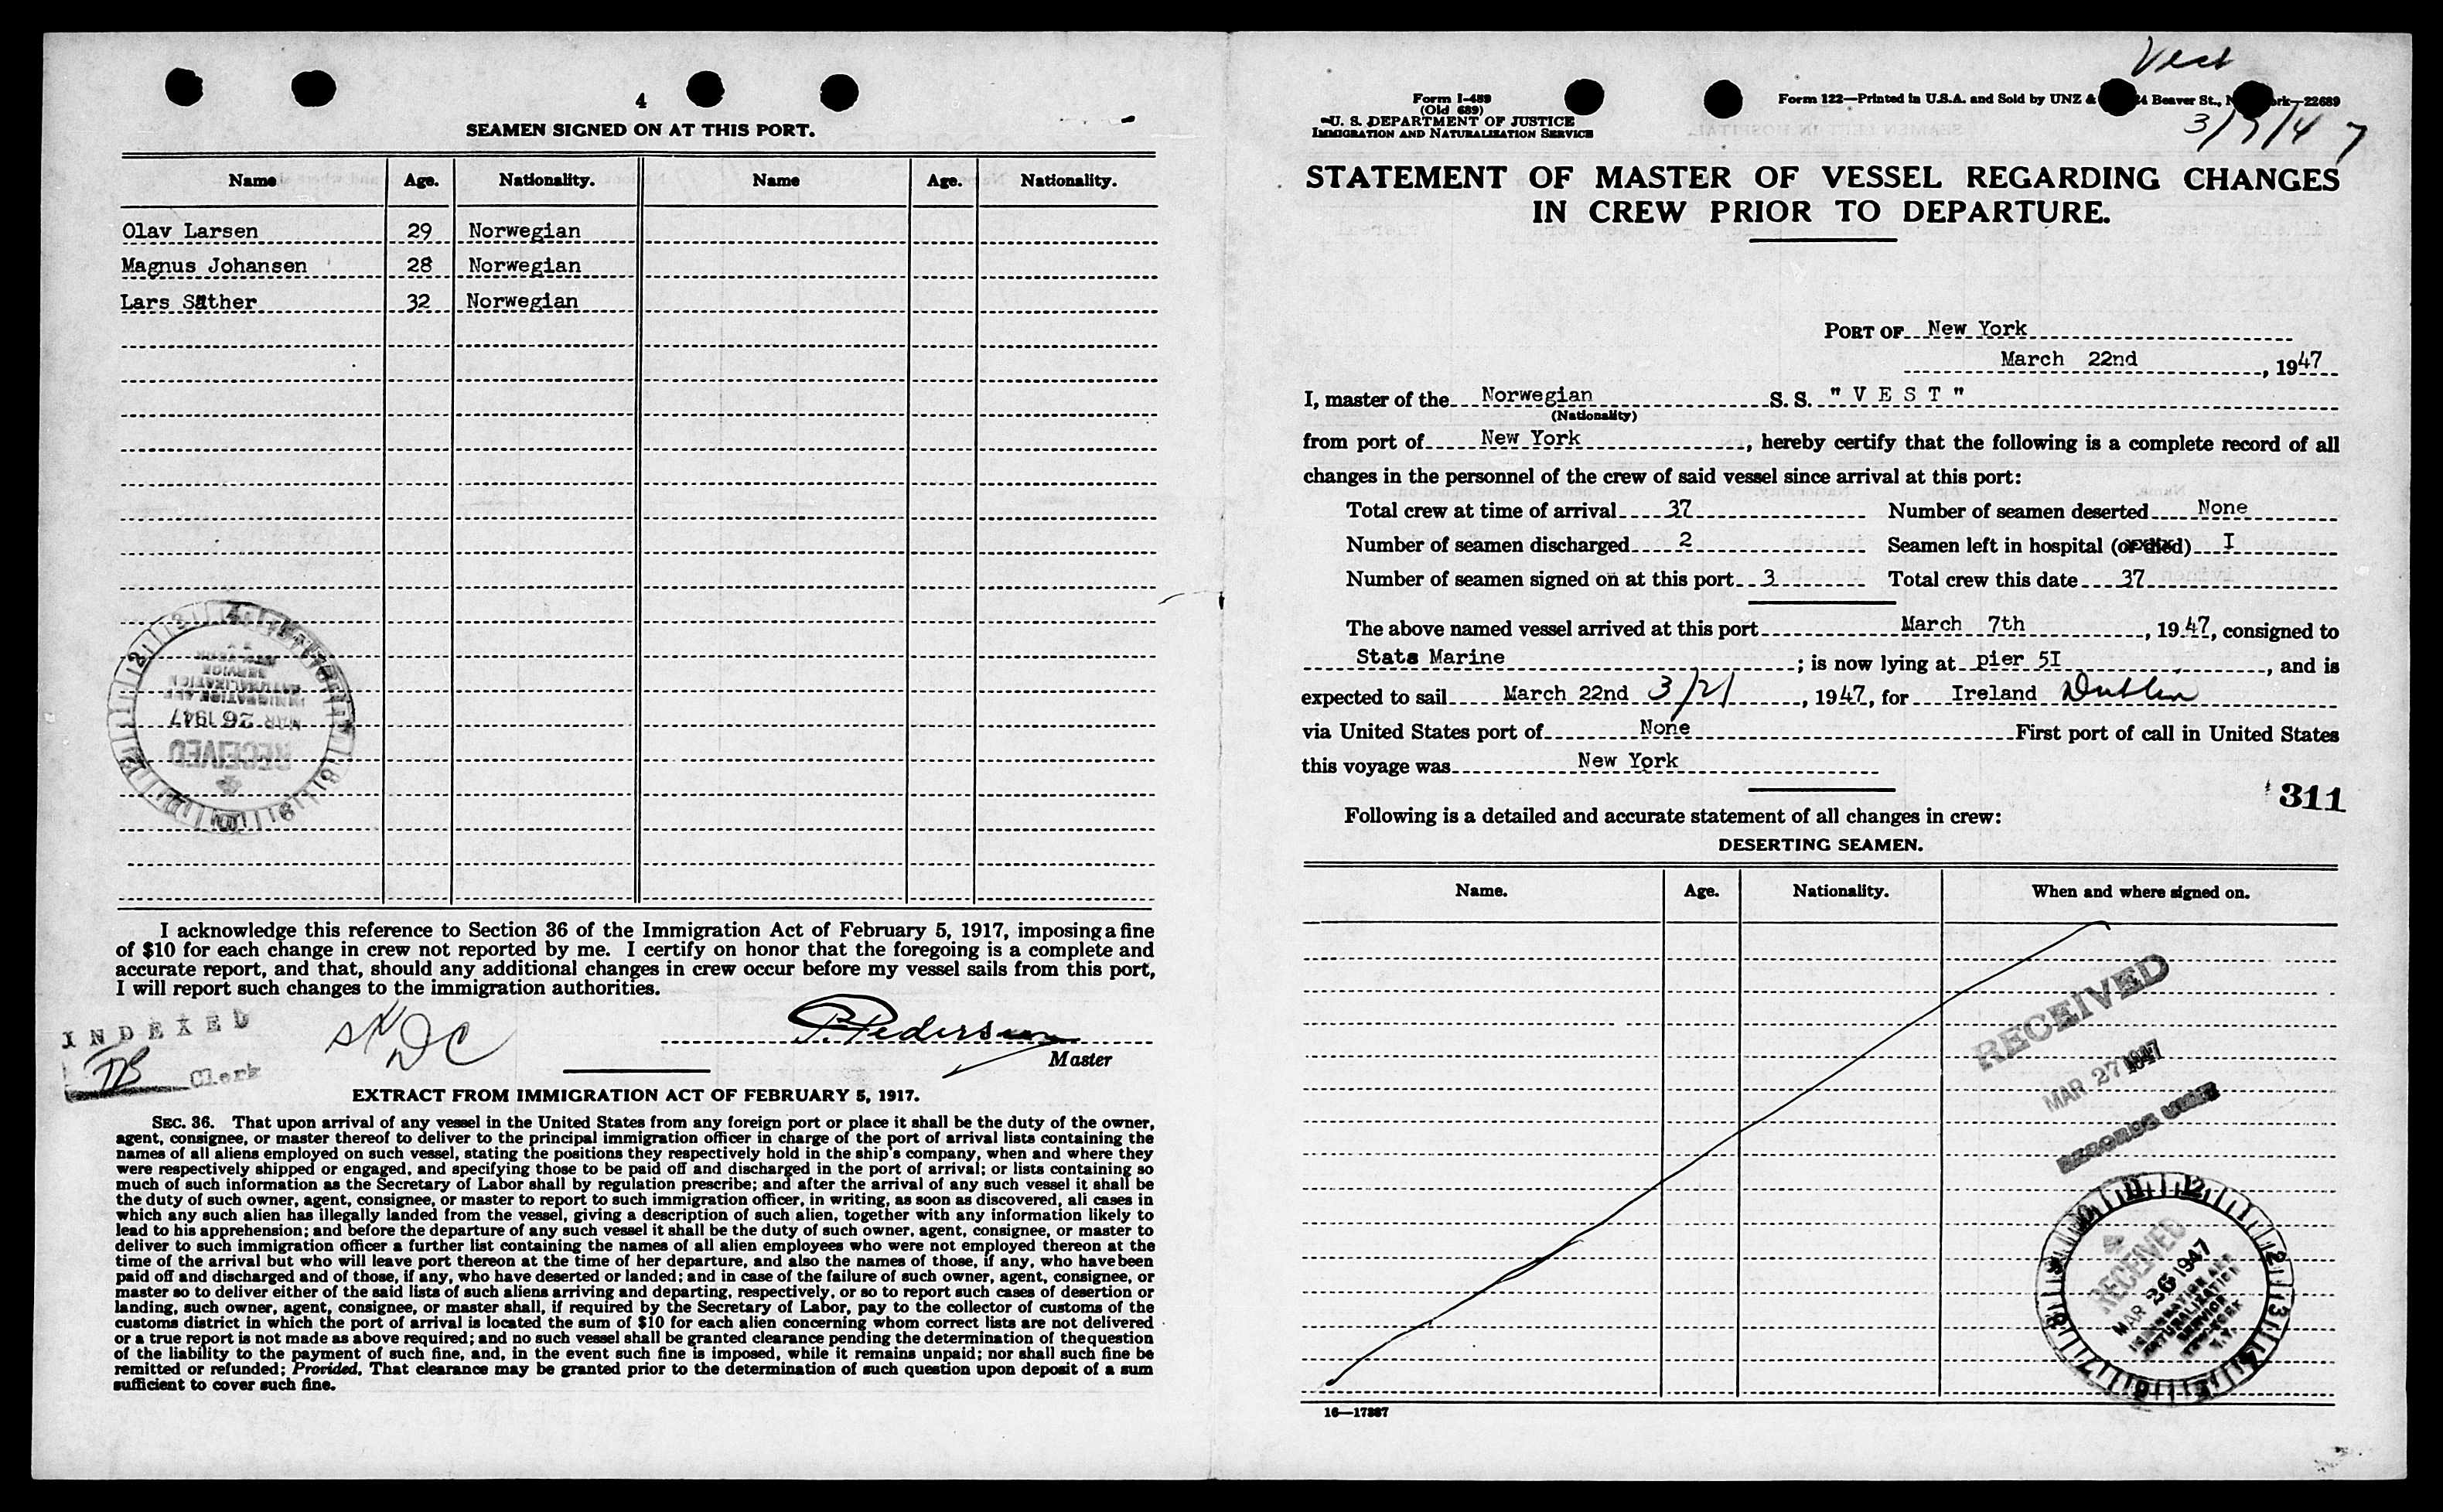 4
SEAMEN SIGNED ON AT THIS PORT.
Name Age. Nationality. Name Age. Nationality.
Olav Larsen 29 Norwegian
Magnus Johansen 28 Norwegian
Lars Sæther 32 Norwegian
RECEIVED
MAR 26 1947
IMMIGRATION AND
NATURALIZATION
SERVICE
NEW YORK
I acknowledge this reference to Section 36 of the Immigration Act of February 5, 1917, imposing a fine
of $10 for each change in crew not reported by me. I certify on honor that the foregoing is a complete and
accurate report, and that, should any additional changes in crew occur before my vessel sails from this port,
I will report such changes to the immigration authorities.
INDEXED
Clerk
P. Pedersen
Master
EXTRACT FROM IMMIGRATION ACT OF FEBRUARY 5, 1917.
SEC. 36. That upon arrival of any vessel in the United States from any foreign port or place it shall be the duty of the owner,
agent, consignee, or master thereof to deliver to the principal immigration officer in charge of the port of arrival lists containing the
names of all aliens employed on such vessel, stating the positions they respectively hold in the ship's company, when and where they
were respectively shipped or engaged, and specifying those to be paid off and discharged in the port of arrival; or lists containing so
much of such information as the Secretary of Labor shall by regulation prescribe; and after the arrival of any such vessel it shall be
the duty of such owner, agent, consignee, or master to report to such immigration officer, in writing, as soon as discovered, all cases in
which any such alien has illegally landed from the vessel, giving a description of such alien, together with any information likely to
lead to his apprehension; and before the departure of any such vessel it shall be the duty of such owner, agent, consignee, or master to
deliver to such immigration officer a further list containing the names of all alien employees who were not employed thereon at the
time of the arrival but who will leave port thereon at the time of her departure, and also the names of those, if any, who have been
paid off and discharged and of those, if any, who have deserted or landed; and in case of the failure of such owner, agent, consignee, or
master so to deliver either of the said lists of such aliens arriving and departing, respectively, or so to report such cases of desertion or
landing, such owner, agent, consignee, or master shall, if required by the Secretary of Labor, pay to the collector of customs of the
customs district in which the port of arrival is located the sum of $10 for each alien concerning whom correct lists are not delivered
or a true report is not made as above required; and no such vessel shall be granted clearance pending the determination of the question
of the liability to the payment of such fine, and, in the event such fine is imposed, while it remains unpaid; nor shall such fine be
remitted or refunded; Provided, That clearance may be granted prior to the determination of such question upon deposit of a sum
sufficient to cover such fine.
Vest
3/7/47
Form I-489
(Old 689)
U. S. DEPARTMENT OF JUSTICE
IMMIGRATION AND NATURALIZATION SERVICE
Form 122—Printed in U.S.A. and Sold by UNZ & Beaver St., 22689
STATEMENT OF MASTER OF VESSEL REGARDING CHANGES
IN CREW PRIOR TO DEPARTURE.
PORT OF New York
March 22nd, 1947
I, master of the Norwegian S. S. " V E S T "
(Nationality)
from port of New York, hereby certify that the following is a complete record of all
changes in the personnel of the crew of said vessel since arrival at this port:
Total crew at time of arrival 37 Number of seamen deserted None
Number of seamen discharged 2 Seamen left in hospital (or died) I
Number of seamen signed on at this port 3 Total crew this date 37
The above named vessel arrived at this port March 7th, 1947, consigned to
State Marine; is now lying at pier 5I, and is
expected to sail March 22nd 3/21, 1947, for Ireland Dublin
via United States port of None First port of call in United States
this voyage was New York
311
Following is a detailed and accurate statement of all changes in crew:
DESERTING SEAMEN.
Name. Age. Nationality. When and where signed on.
RECEIVED
MAR 27 1947
RECORDS UNIT
RECEIVED
MAR 26 1947
IMMIGRATION AND
NATURALIZATION
SERVICE
NEW YORK
N.Y.
16—17387